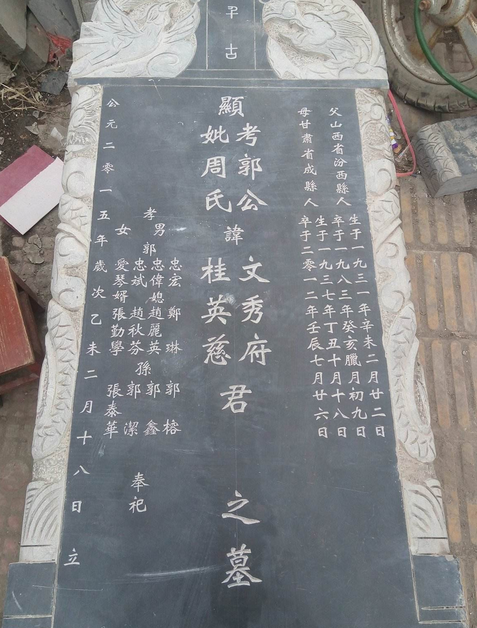 古
父山西省汾西縣人 生于一九三一年辛未二月廿二日
卒于一九八三年癸亥臘月初九日
母甘肅省成縣人 生于一九三七年丁丑十月十八日
卒于二零一二年壬辰七月廿六日
顯
考郭公
妣周氏
諱
文秀府
桂英慈
君之墓
孝男
郭
忠宏 鄭琳 郭榕
忠偉媳趙麗英孫郭鑫
忠斌 趙秋芬 郭潔
女 愛琴婿張勤學 張泰華
奉祀
公元二零一五年歲次乙未二月十八日立